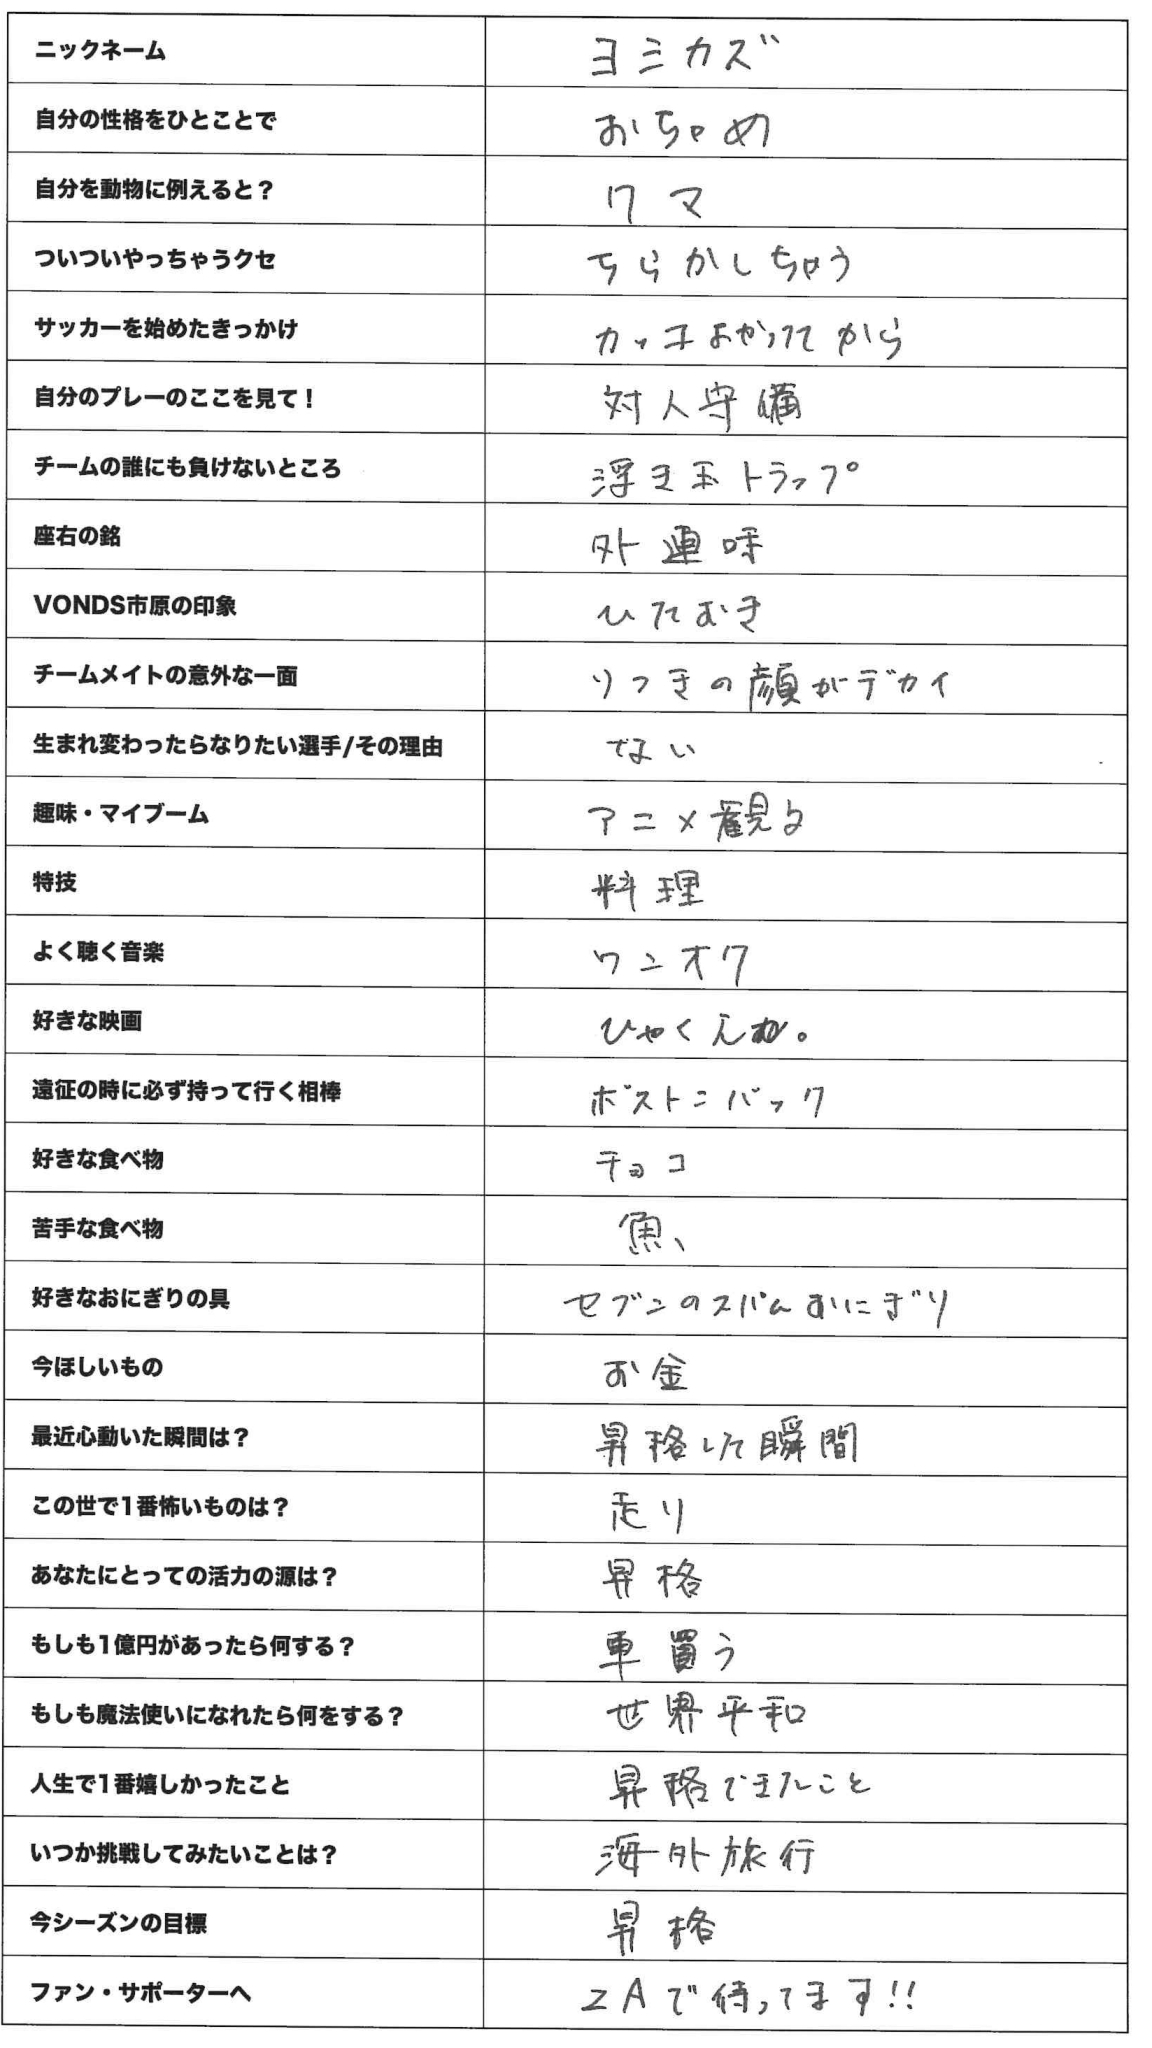 ニックネーム ヨミカズ
自分の性格をひとことで おちゃめ
自分を動物に例えると？ クマ
ついついやっちゃうクセ ちらかしちゃう
サッカーを始めたきっかけ カッコよかったから
自分のプレーのここを見て！ 対人守備
チームの誰にも負けないところ 浮き玉トラップ
座右の銘 外連味
VONDS市原の印象 ひたむき
チームメイトの意外な一面 りつきの顔がデカイ
生まれ変わったらなりたい選手/その理由 ない
趣味・マイブーム アニメ観る
特技 料理
よく聴く音楽 ワンオク
好きな映画 ひゃくえむ。
遠征の時に必ず持って行く相棒 ボストンバック
好きな食べ物 チョコ
苦手な食べ物 魚、
好きなおにぎりの具 セブンのスパムおにぎり
今ほしいもの お金
最近心動いた瞬間は？ 昇格した瞬間
この世で1番怖いものは？ 走り
あなたにとっての活力の源は？ 昇格
もしも1億円があったら何する？ 車買う
もしも魔法使いになれたら何をする？ 世界平和
人生で1番嬉しかったこと 昇格できたこと
いつか挑戦してみたいことは？ 海外旅行
今シーズンの目標 昇格
ファン・サポーターへ ZAで待ってます!!